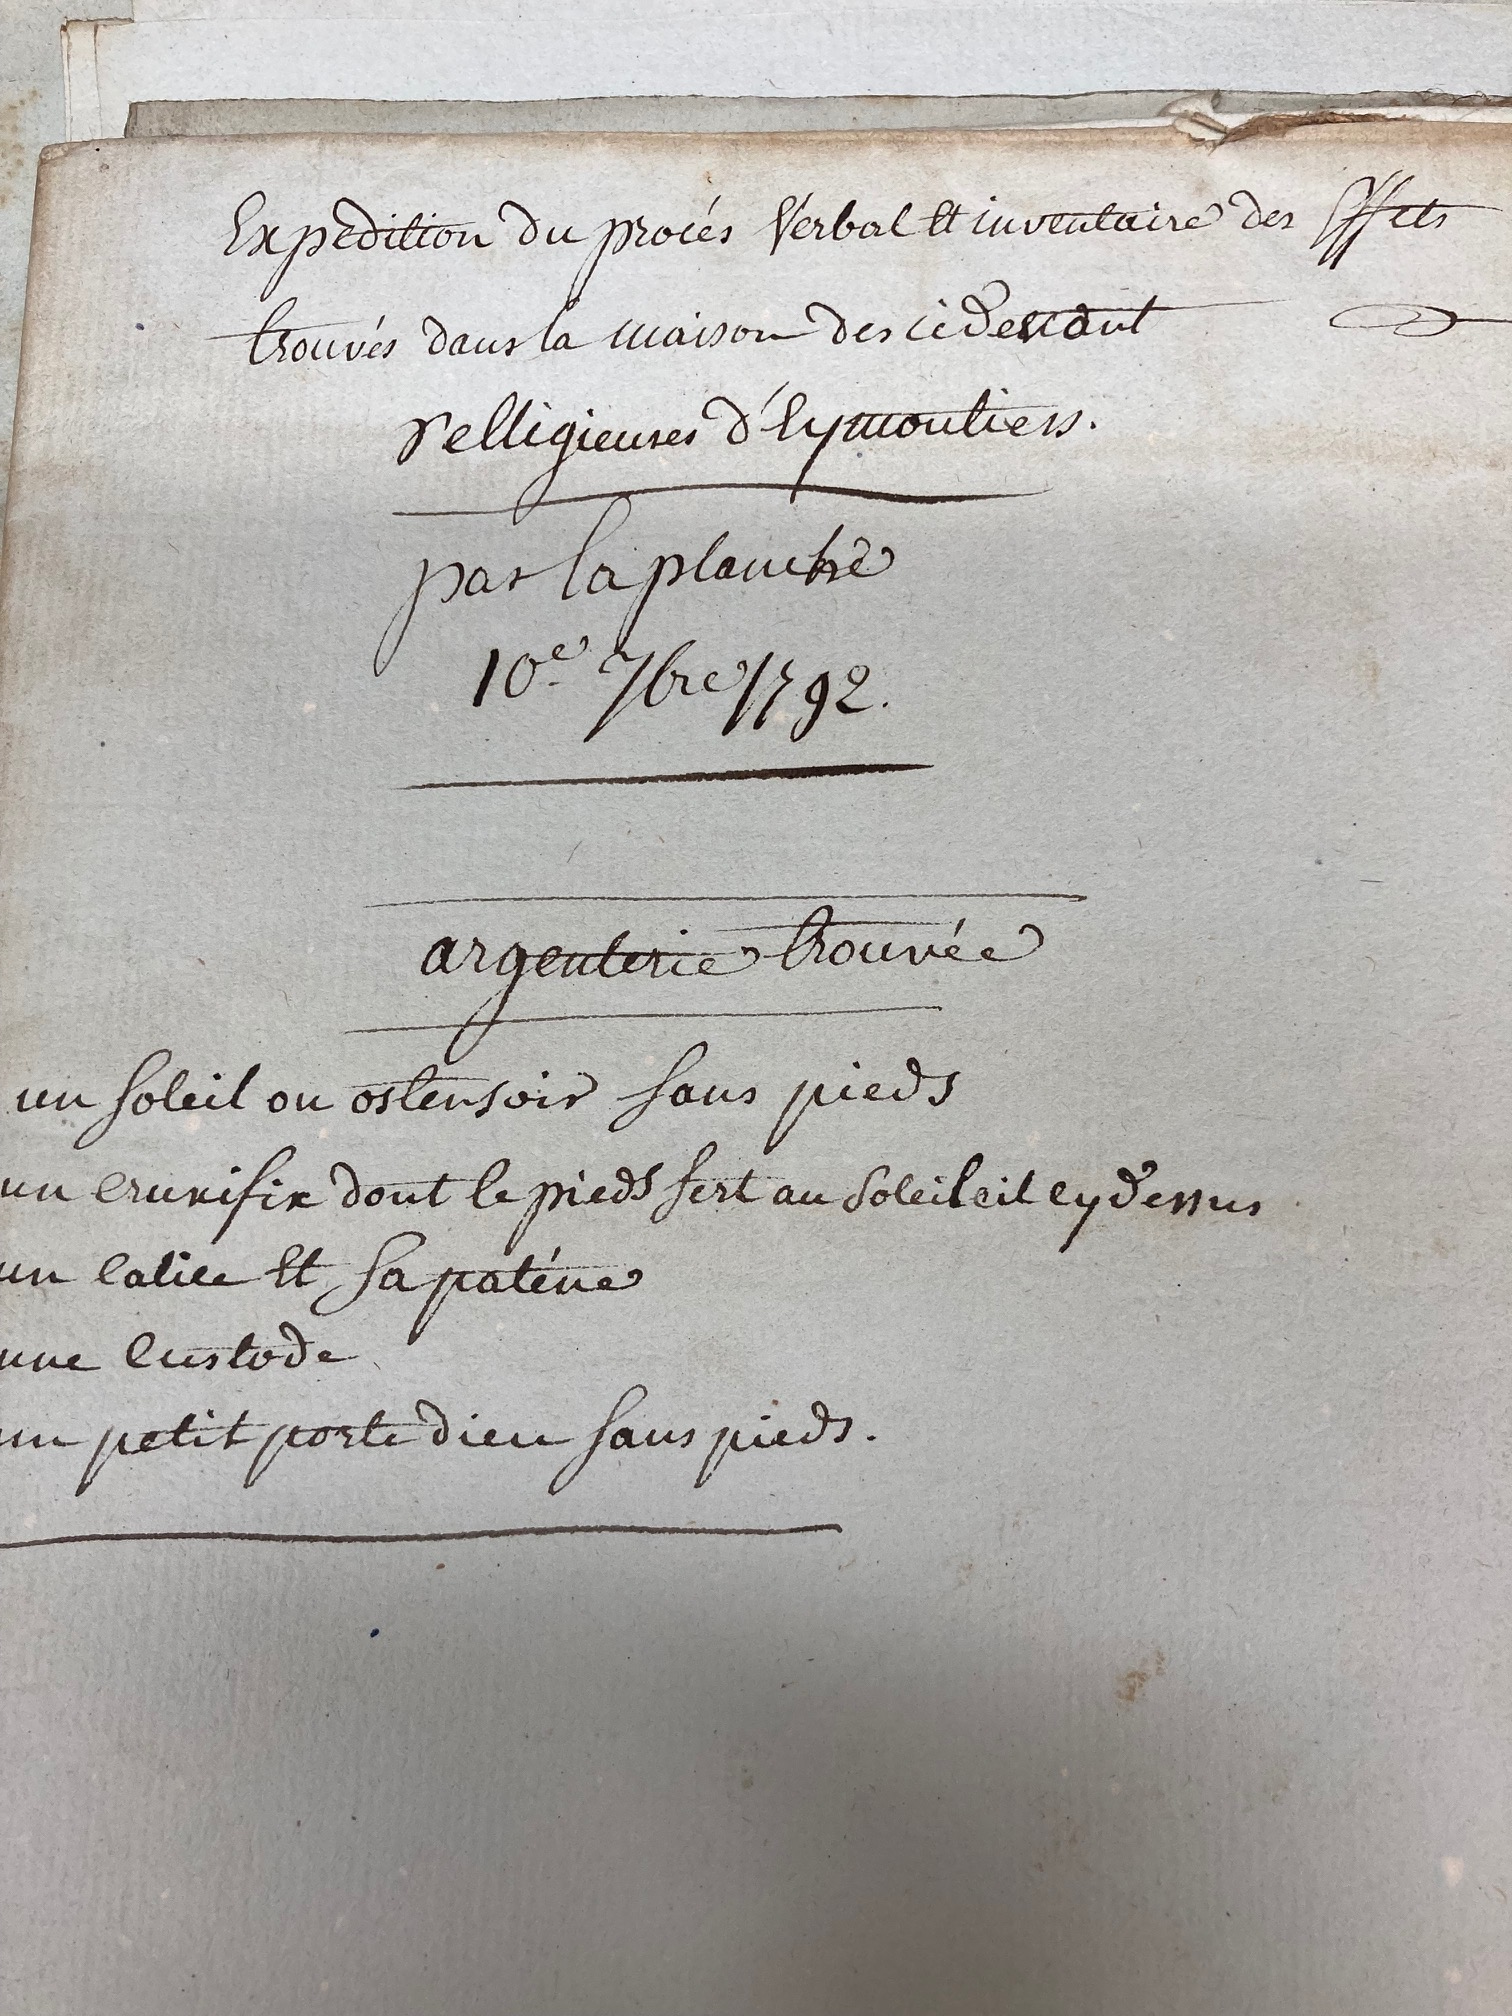 Expedition du procés Verbal et inventaire des Effets
trouvés dans la maison des cidevant
relligieuses d'Eymoutiers.
par laplanche
10e 7bre 1792.
argenterie trouvée
un soleil ou ostensoir sans pieds
un crucifix dont le pieds sert au soleileil cydessus
un calice et sa paténe
une custode
un petit porte dieu sans pieds.